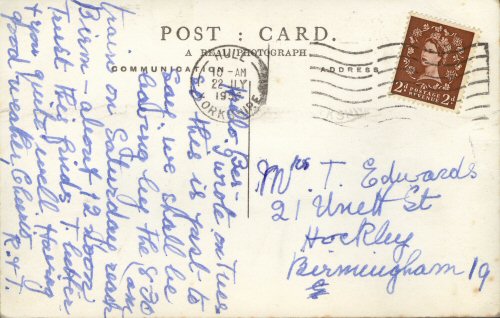 POST : CARD.
A REAL PHOTOGRAPH
COMMUNICATION
ADDRESS
HULL
10-AM
22 JLY
19
YORKSHIRE
2D POSTAGE REVENUE 2D
Mrs T. Edwards
21 Unett St
Hockley
Birmingham 19
Hello Bes-
I wrote on Tues
so this is just to
say we shall be
leaving by the 8-30 am
train on Saturday reach
Birm - about 12 noon
Trust this finds T better
& you quite well. Having
good weather Cheerio